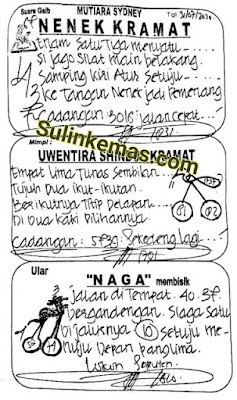 Suara Gaib MUTIARA SYDNEY Tgl 31/07/2024
NENEK KRAMAT
Enam Satu Tiga menyatu ....
Si jago Silat main belakang.
Samping Kiri Atas Setuju ....
Ke Tangan Nenek jadi Pemenang
Cadangan 3016 jalan cepat ...
Sulinkemas.com
Mimpi :
UWENTIRA SHIN KRAMAT
Empat Lima Tunas Sembilan ...
Tujuh Dua ikut-ikutan.
Berikutnya Titip Delapan
Di Dua Kaki Pilihannya.
Cadangan : 5739. Sekedeng lagi ...
Ular
"NAGA" membisik
jalan di Tempat. 40. 37.
bergandengan. Siaga Satu
di jalurnya (10) Setuju me-
nuju Depan panglima.